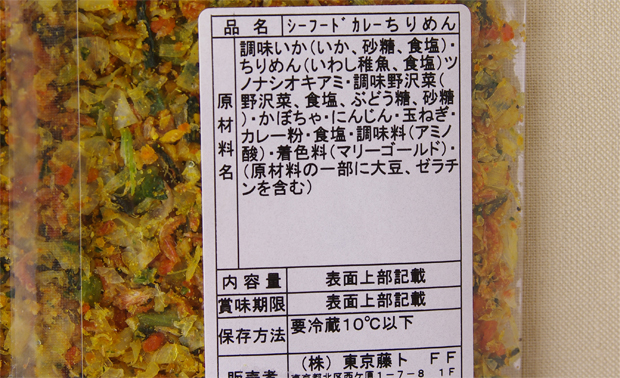 品名 シーフードカレーちりめん
原材料名
調味いか(いか、砂糖、食塩)・
ちりめん(いわし稚魚、食塩)ツ
ノナシオキアミ・調味野沢菜(
野沢菜、食塩、ぶどう糖、砂糖
)・かぼちゃ・にんじん・玉ねぎ・
カレー粉・食塩・調味料(アミノ
酸)・着色料(マリーゴールド)・
(原材料の一部に大豆、ゼラチ
ンを含む)
内容量 表面上部記載
賞味期限 表面上部記載
保存方法 要冷蔵10℃以下
販売者 (株) 東京藤ト FF
東京都北区西ケ原1-7-8 1F